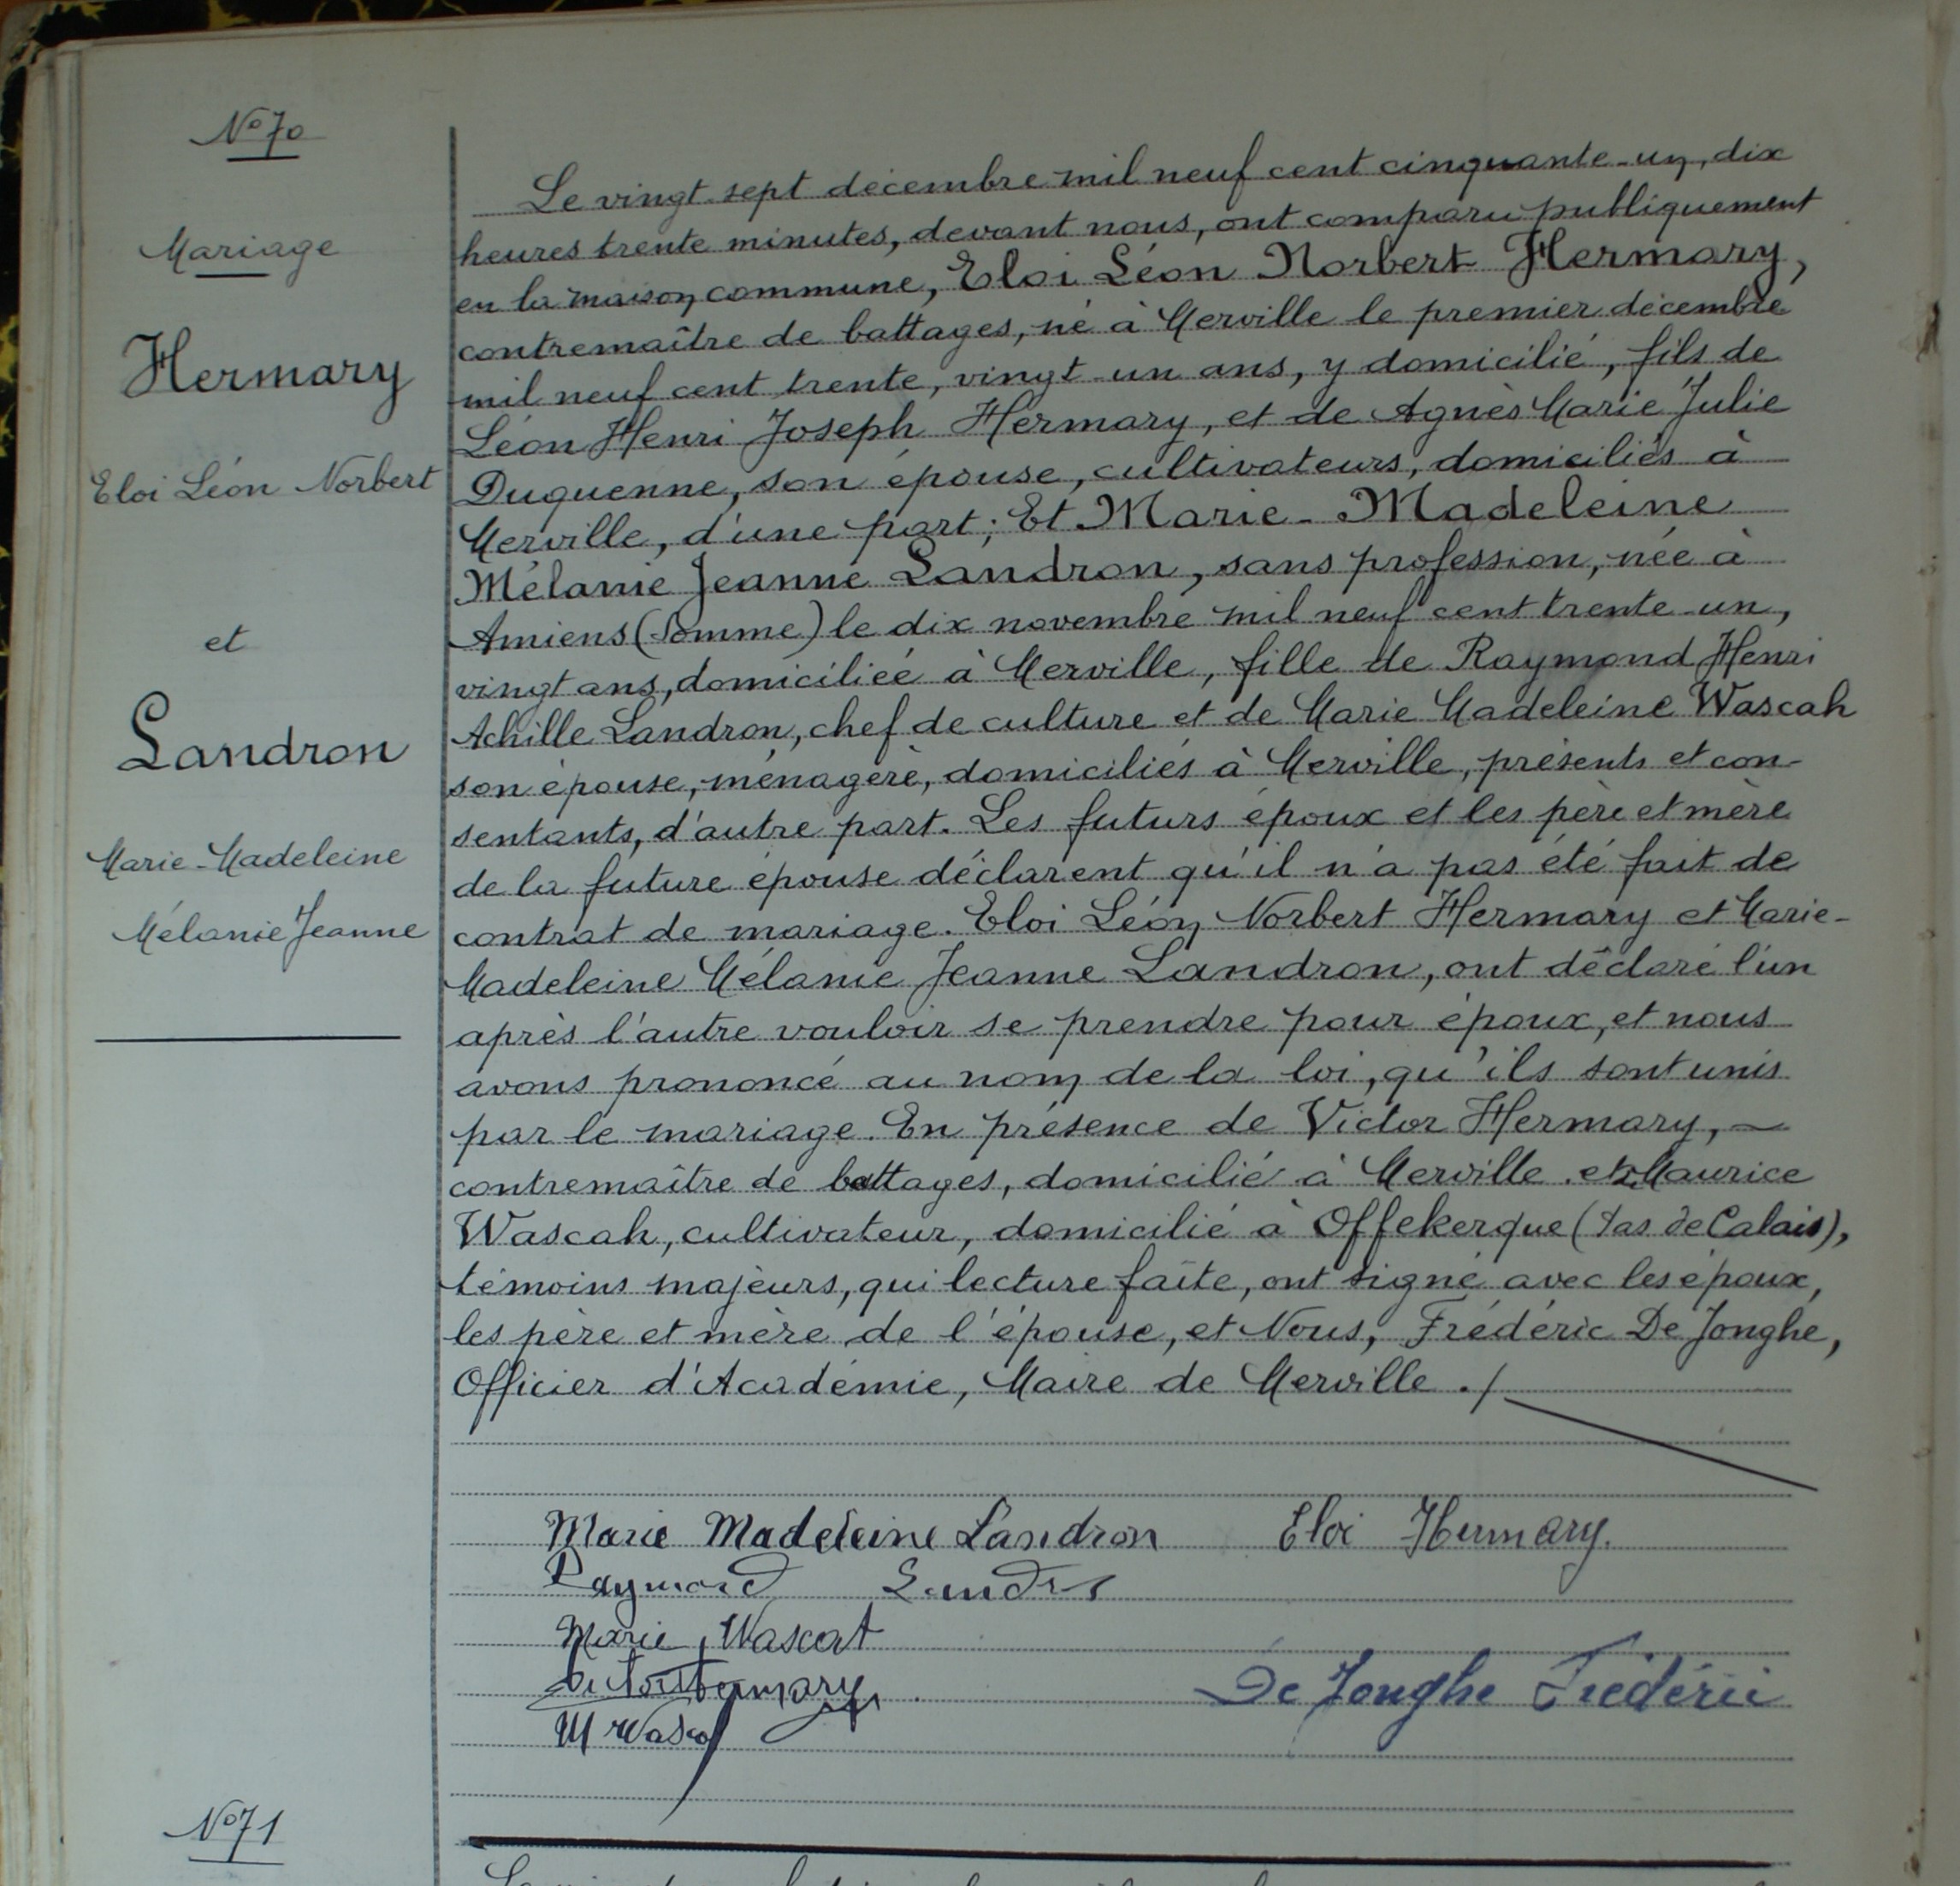 N° 70
Mariage
Hermary
Eloi Léon Norbert
et
Landron
Marie-Madeleine
Mélanie Jeanne
Le vingt-sept décembre mil neuf cent cinquante-un, dix
heures trente minutes, devant nous, ont comparu publiquement
en la maison commune, Eloi Léon Norbert Hermary,
contremaître de battages, né à Merville le premier décembre
mil neuf cent trente, vingt-un ans, y domicilié, fils de
Léon Henri Joseph Hermary, et de Agnès Marie Julie
Duquenne, son épouse, cultivateurs, domiciliés à
Merville, d'une part; Et Marie-Madeleine
Mélanie Jeanne Landron, sans profession, née à
Amiens (Somme) le dix novembre mil neuf cent trente-un,
vingt ans, domiciliée à Merville, fille de Raymond Henri
Achille Landron, chef de culture et de Marie Madeleine Wascah
son épouse, ménagère, domiciliés à Merville, présents et con-
sentants, d'autre part. Les futurs époux et les père et mère
de la future épouse déclarent qu'il n'a pas été fait de
contrat de mariage. Eloi Léon Norbert Hermary et Marie-
Madeleine Mélanie Jeanne Landron, ont déclaré l'un
après l'autre vouloir se prendre pour époux, et nous
avons prononcé au nom de la loi, qu'ils sont unis
par le mariage. En présence de Victor Hermary,
contremaître de battages, domicilié à Merville et Maurice
Wascah, cultivateur, domicilié à Offekerque (Pas de Calais),
témoins majeurs, qui lecture faite, ont signé avec les époux,
les père et mère de l'épouse, et Nous, Frédéric De Jonghe,
Officier d'Académie, Maire de Merville ./
Marie Madeleine Landron Eloi Hermary.
Raymond Landron
Marie Wascat
Victor Hermary De Jonghe Frédéric
M Wasca
N° 71